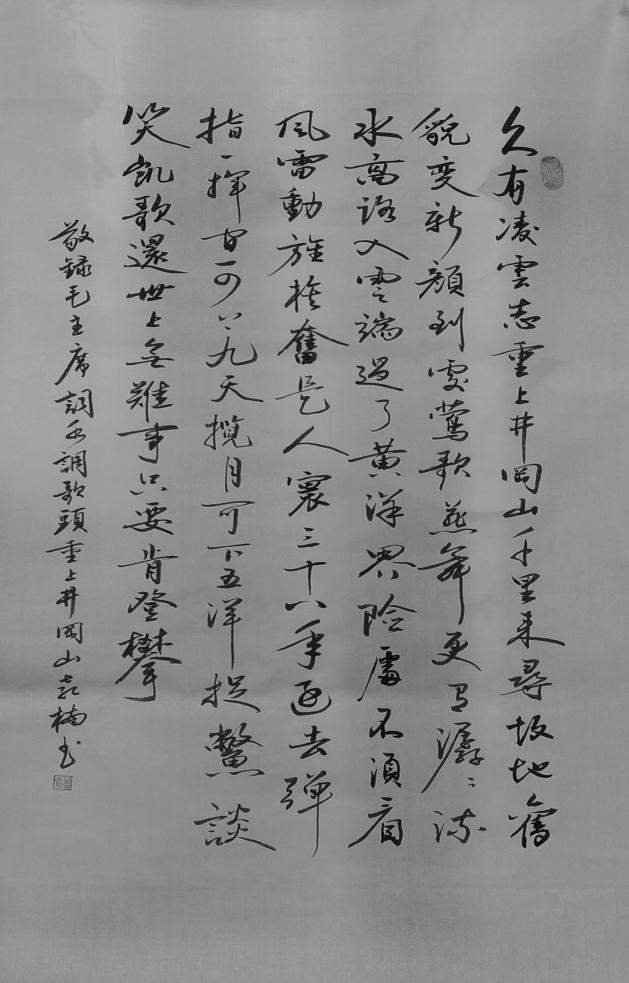 久有凌雲志重上井岡山千里来尋故地舊
貌變新顏到處鶯歌燕舞更有潺〻流
水高路入雲端過了黄洋界险處不須看
風雷動旌旗奮是人寰三十八年過去彈
指一揮間可上九天攬月可下五洋捉鱉談
笑凱歌還世上無難事只要肯登攀
敬録毛主席詞水調歌頭重上井岡山楠书